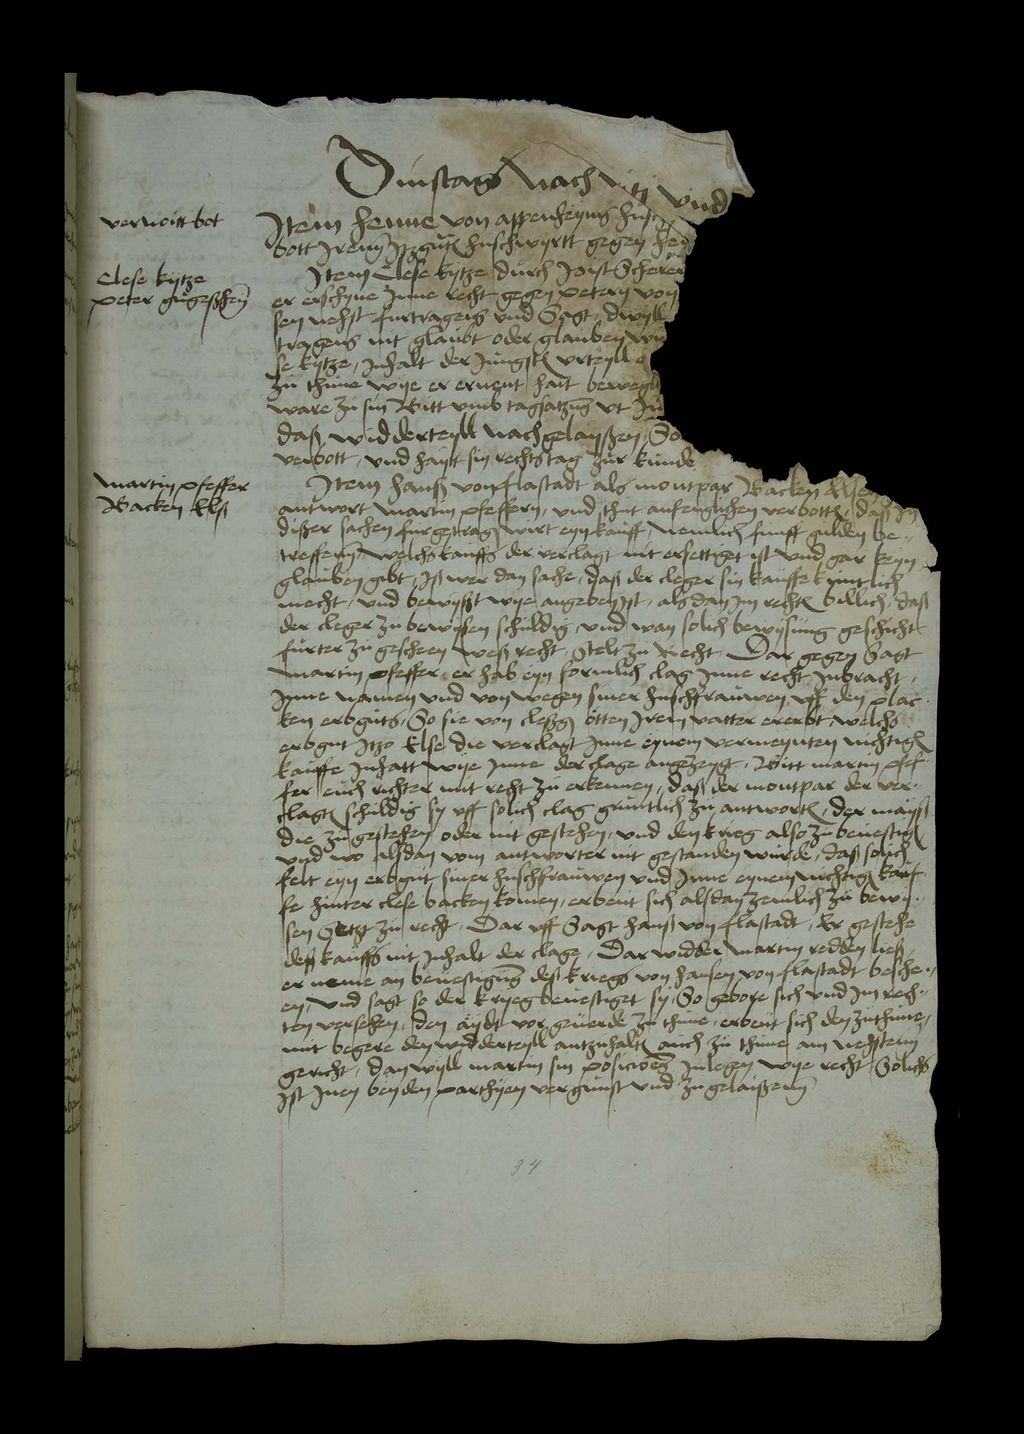 Dinstag Nach viti Vnd
vernoitt bot
Item Henne von appenheyms huß
bott Irem Itzgut huschwyrtt gegen
Clese kytze
peter
Item Clese kytze durch Joist Scherer
er erschyne Inne recht gegen petern von
sen nehst furtragens vnd Sagt, dwyll
tragens nit glaubt oder glauben
se kytze, Inhalt der Jungst vrteyll
zu thune wye er ernent hait
ware zu sin Bitt vmb tagsatzung vt
daß widderteyll nachgelayßen, So
verbott, vnd haytt sin rechtstag zur kunde
martin pfeffer
Backen Elß
Item hanß von flastadt als montpar Backen Elsen
antwort martin pfeffern, vnd thut anfenglichen verbotten, daß In
dißer sachen furgetragen wirt eyn kauff, nemlich funff gulden be
treffenn, welchs kauffs der verclagt nit ersettiget ist vnd gar keyn
glauben gibt, Iß wer dan sache, daß der cleger sin kauffe kuntlich
mecht, vnd bewyßt wye angeben ist, als dan Im rechten billich, daß
der cleger zu bewysen schuldig, vnd wan solich bewysung geschicht
furter zu gescheen weß recht, Stelt zu Recht Dar gegen Sagt
martin pfeffer, er hab eyn formlich clag Inne recht Inbracht,
Inne namen vnd von wegen siner huschfrauwen, vff den plac
ken erbguts, So sie von otten Irem vatter ererbt welchs
erbgut Itzo Else die verclagt Inne eynem vermeynten nichtigen
kauffe Inhatt wye Inne der clage angezeygt, Bitt martin pfef
fer euch richter mit recht zu erkennen, daß der montpar der ver
clagten schuldig sy vff solich clag gruntlich zu antworten, der mayß
die zu gestehen oder nit gestehen, vnd den krieg also zu beuestigen
vnd wo alsdan vom antworter nit gestanden wurde, daß solich
felt eyn erbgut siner huschfrauwen vnd Inne eynem nichtigen kauf
fe hinter clese backen komen, erbeut sich alsdan zemlich zu bewy
sen Setzt zu recht, Dar vff Sagt hanß von flastadt, Er gestehe
deß kauffs nit Inhalt der clage, Dar widder martin redden ließ,
er neme an beuestigung deß kriegs von hansen von flastadt beschee
en, vnd sagt so der kryeg beuestiget sy, So gebore sich vnd Im rech
ten versehen, den aydt vor geuerde zu thune, erbeut sich den zuthune,
mit begere den widderteyll antzuhalten auch zu thune am nehstenn
gericht, dan wyll martin sin posicion Inlegen wye recht, Solichs
Ist Inen beyden parthyen vergunst vnd zugelaißenn
34